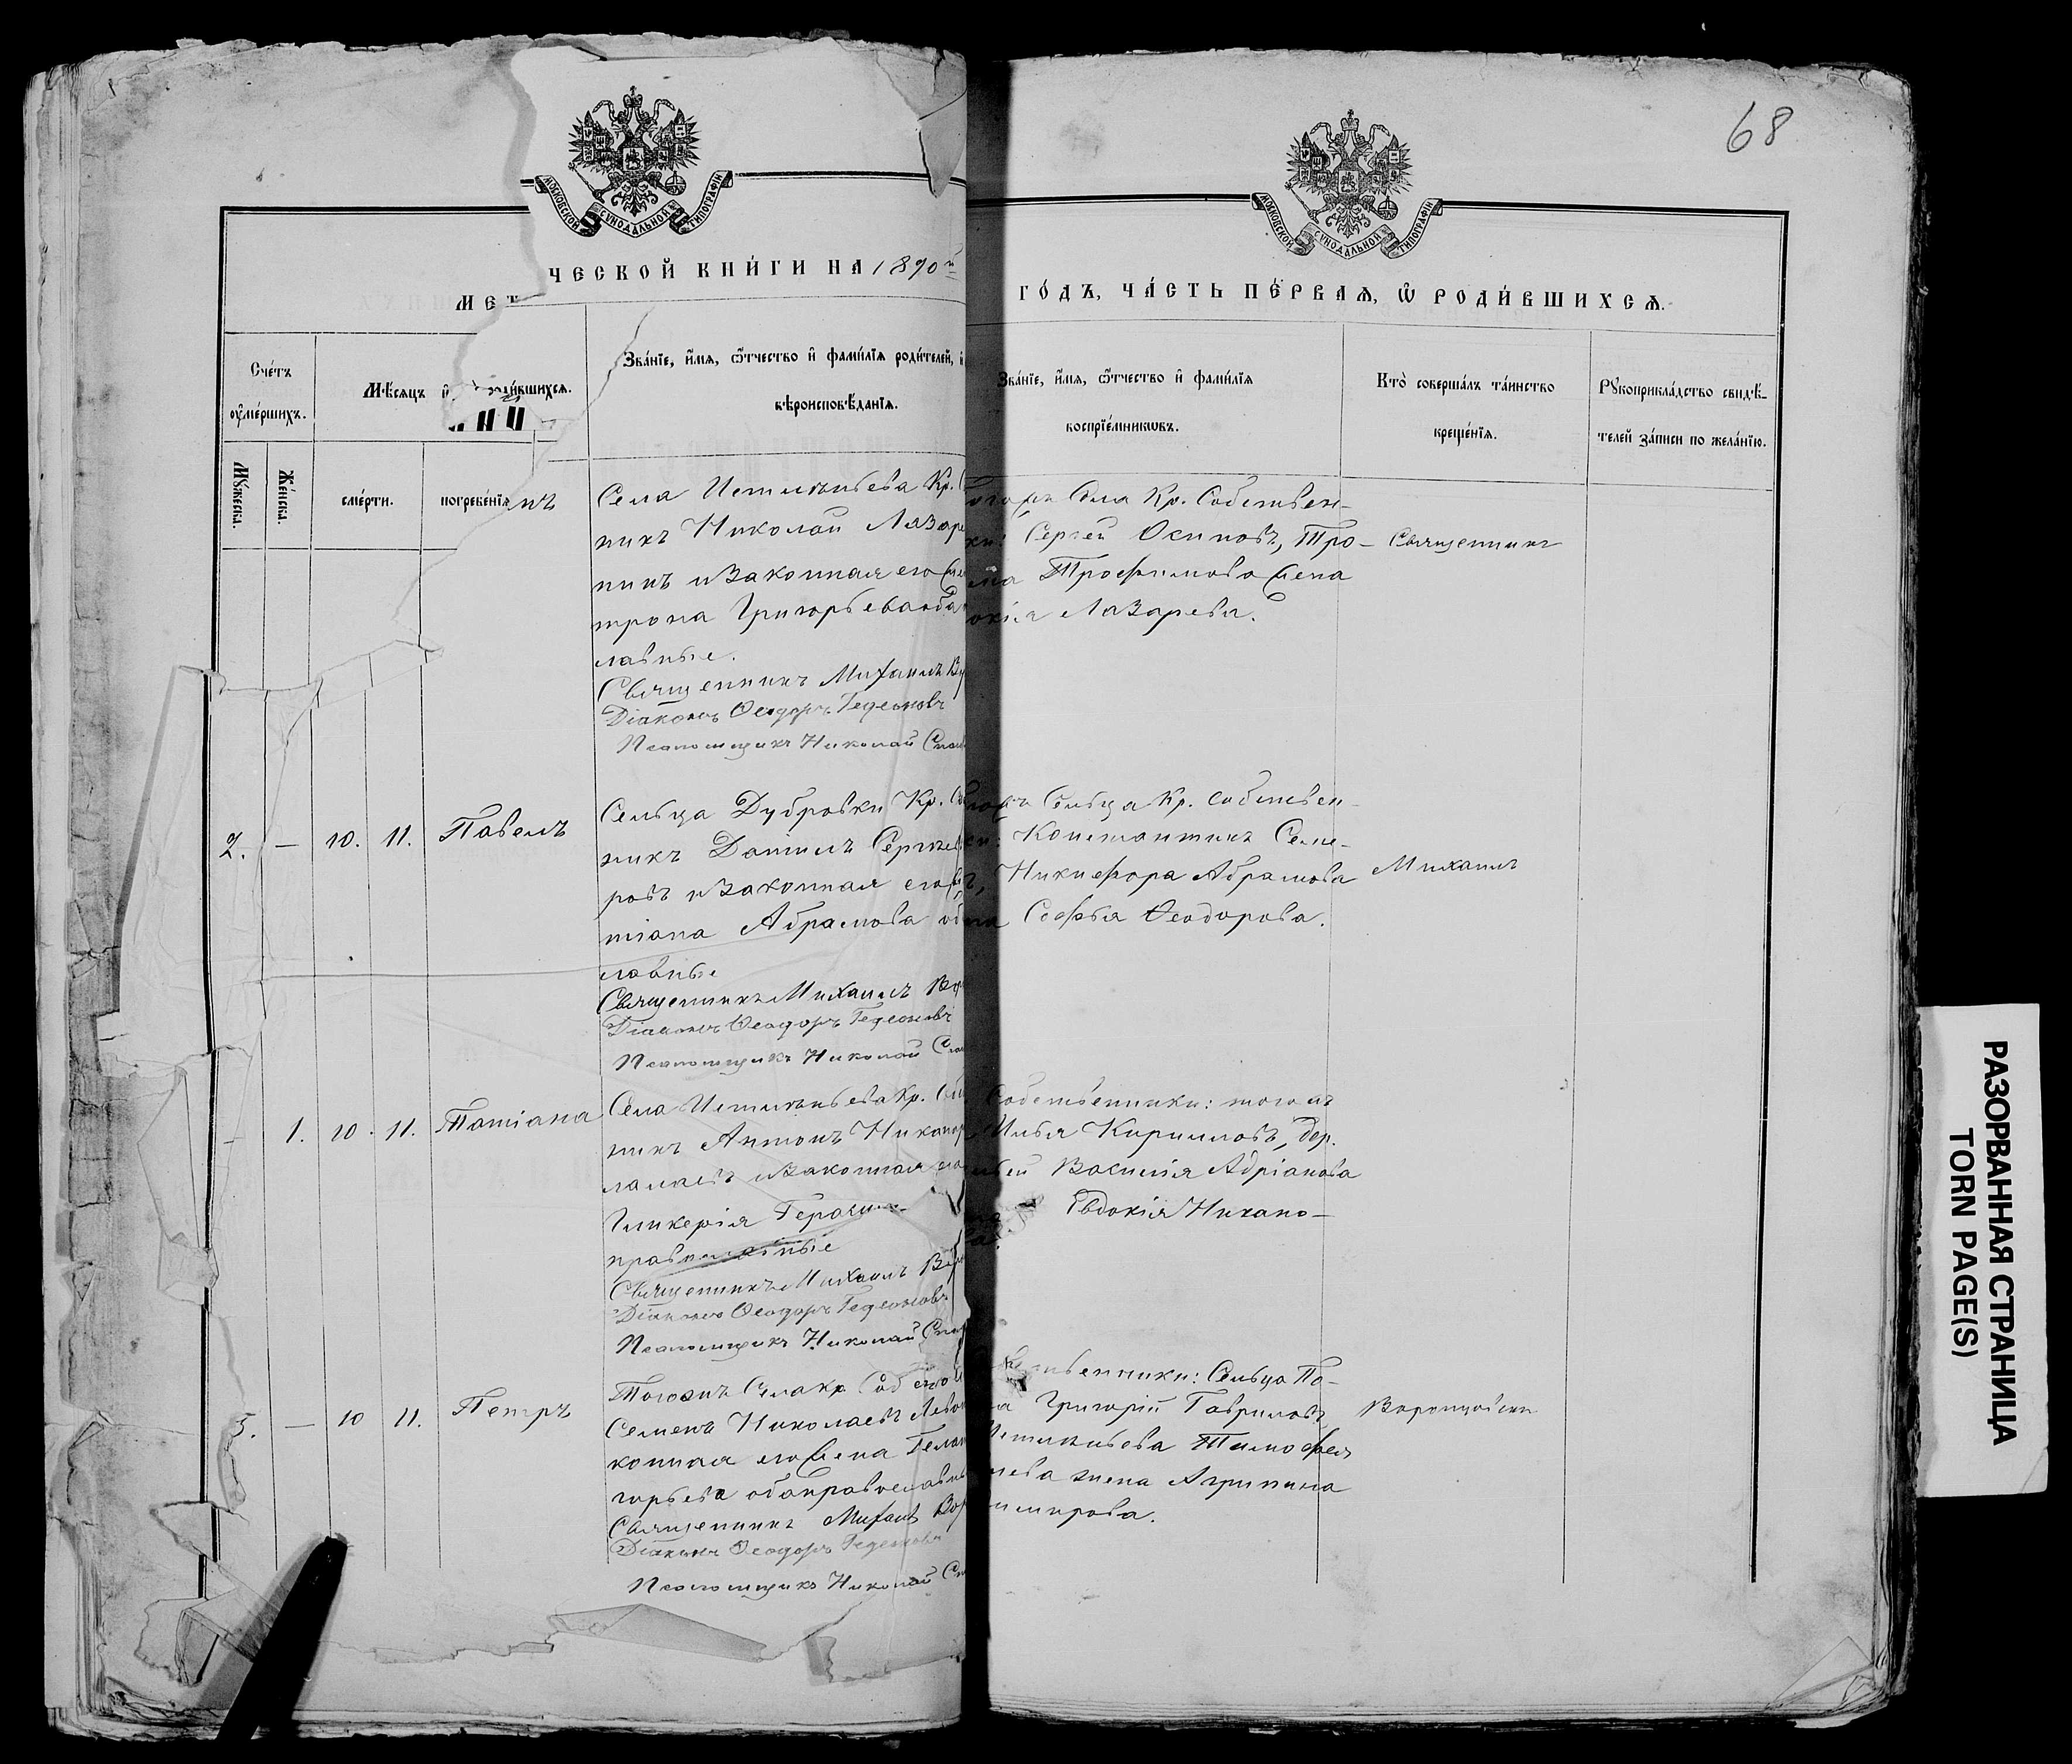 68
МОСКОВСКОЙ СѴНОДАЛЬНОЙ ТИПОГРАФІИ
МОСКОВСКОЙ СѴНОДАЛЬНОЙ ТИПОГРАФІИ
МЕТ ЧЕСКОЙ КНИ́ГИ НА 1890й
ГО́ДЪ, ЧА́СТЬ ПЕ́РВАѦ, Ѽ РОДИ́ВШИХСѦ.
Сче́тъ
ᲂу҆ме́ршихъ.
Мѣ́сяцъ и҆ роди́вшихсѧ.
Зва́нїе, и҆́мѧ, ѻ҆́тчество и҆ фами́лїѧ роди́телей, и҆
вѣроисповѣ́данїѧ.
Зва́нїе, и҆́мѧ, ѻ҆́тчество и҆ фами́лїѧ
воспрїе́мникѡвъ.
Кто̀ соверша́лъ та́инство
креще́нїѧ.
Рꙋкоприкла́дство свидѣ́-
телей за́писи по жела́нїю.
Мꙋ́жеска.
Же́нска.
сме́рти.
погребе́нїѧ
нъ
Села Истлѣньева Кр.
никъ Николай Лазаре
нинъ и законная его же
трона Григорьева оба
лавные.
Священникъ Михаилъ Во
Діаконъ Ѳеодоръ Гедеоновъ
Псаломщикъ Николай Спас
Села Кр. Собствен-
ки: Сергей Осиповъ, Тро-
има Трофимова жена
окія Лазарева.
Священникъ
2. — 10. 11. Павелъ
Сельца Дубровки Кр. Со
никъ Даніилъ Сергѣев
ровъ и законная его
тіана Абрамова об
лавные
Священникъ Михаилъ Во
Діаконъ Ѳеодоръ Гедеоновъ
Псаломщикъ Николай Спас
Сельца Кр. собствен-
ки: Константинъ Семе-
Никифора Абрамова
на Софья Ѳеодорова.
Михаилъ
— 1. 10. 11. Татіана
Села Истлѣньева Кр. Соб
никъ Антонъ Никанор
и законная его
Гликерія Герасим
православные
Священникъ Михаилъ Во
Діаконъ Ѳеодоръ Гедеоновъ
Псаломщикъ Николай Спас
Собственники: того ж
Илья Кирилловъ, дер.
Василія Адріанова
на Евдокія Никано-
ва.
3. — 10 11. Петръ
Тогожъ Села кр. Собствен
Семенъ Николаевъ Лево
конная его жена Пела
горьева оба православны
Священникъ Михаилъ Вор
Діаконъ Ѳеодоръ Гедеоновъ
Псаломщикъ Николай Сп
ственники: Сельца По-
ка Григорій Гавриловъ
Истлѣньева Тимофея
ева жена Агрипина
имирова.
Воронцовскій
РАЗОРВАННАЯ СТРАНИЦА
TORN PAGE(S)